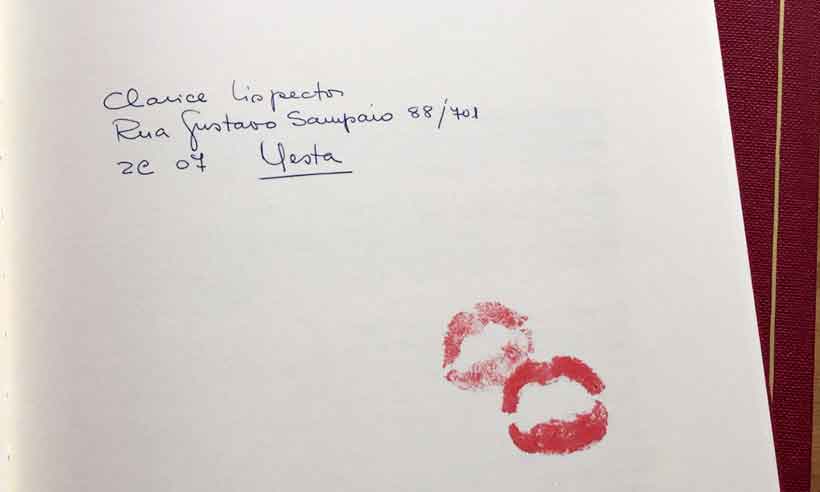 Clarice Lispector
Rua Gustavo Sampaio 88/701
ZC 07 Nesta